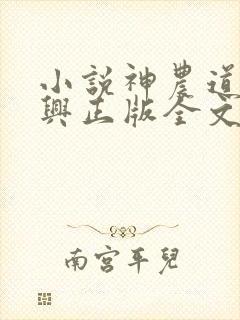 小說神農道
興正版全文
南宮平兒